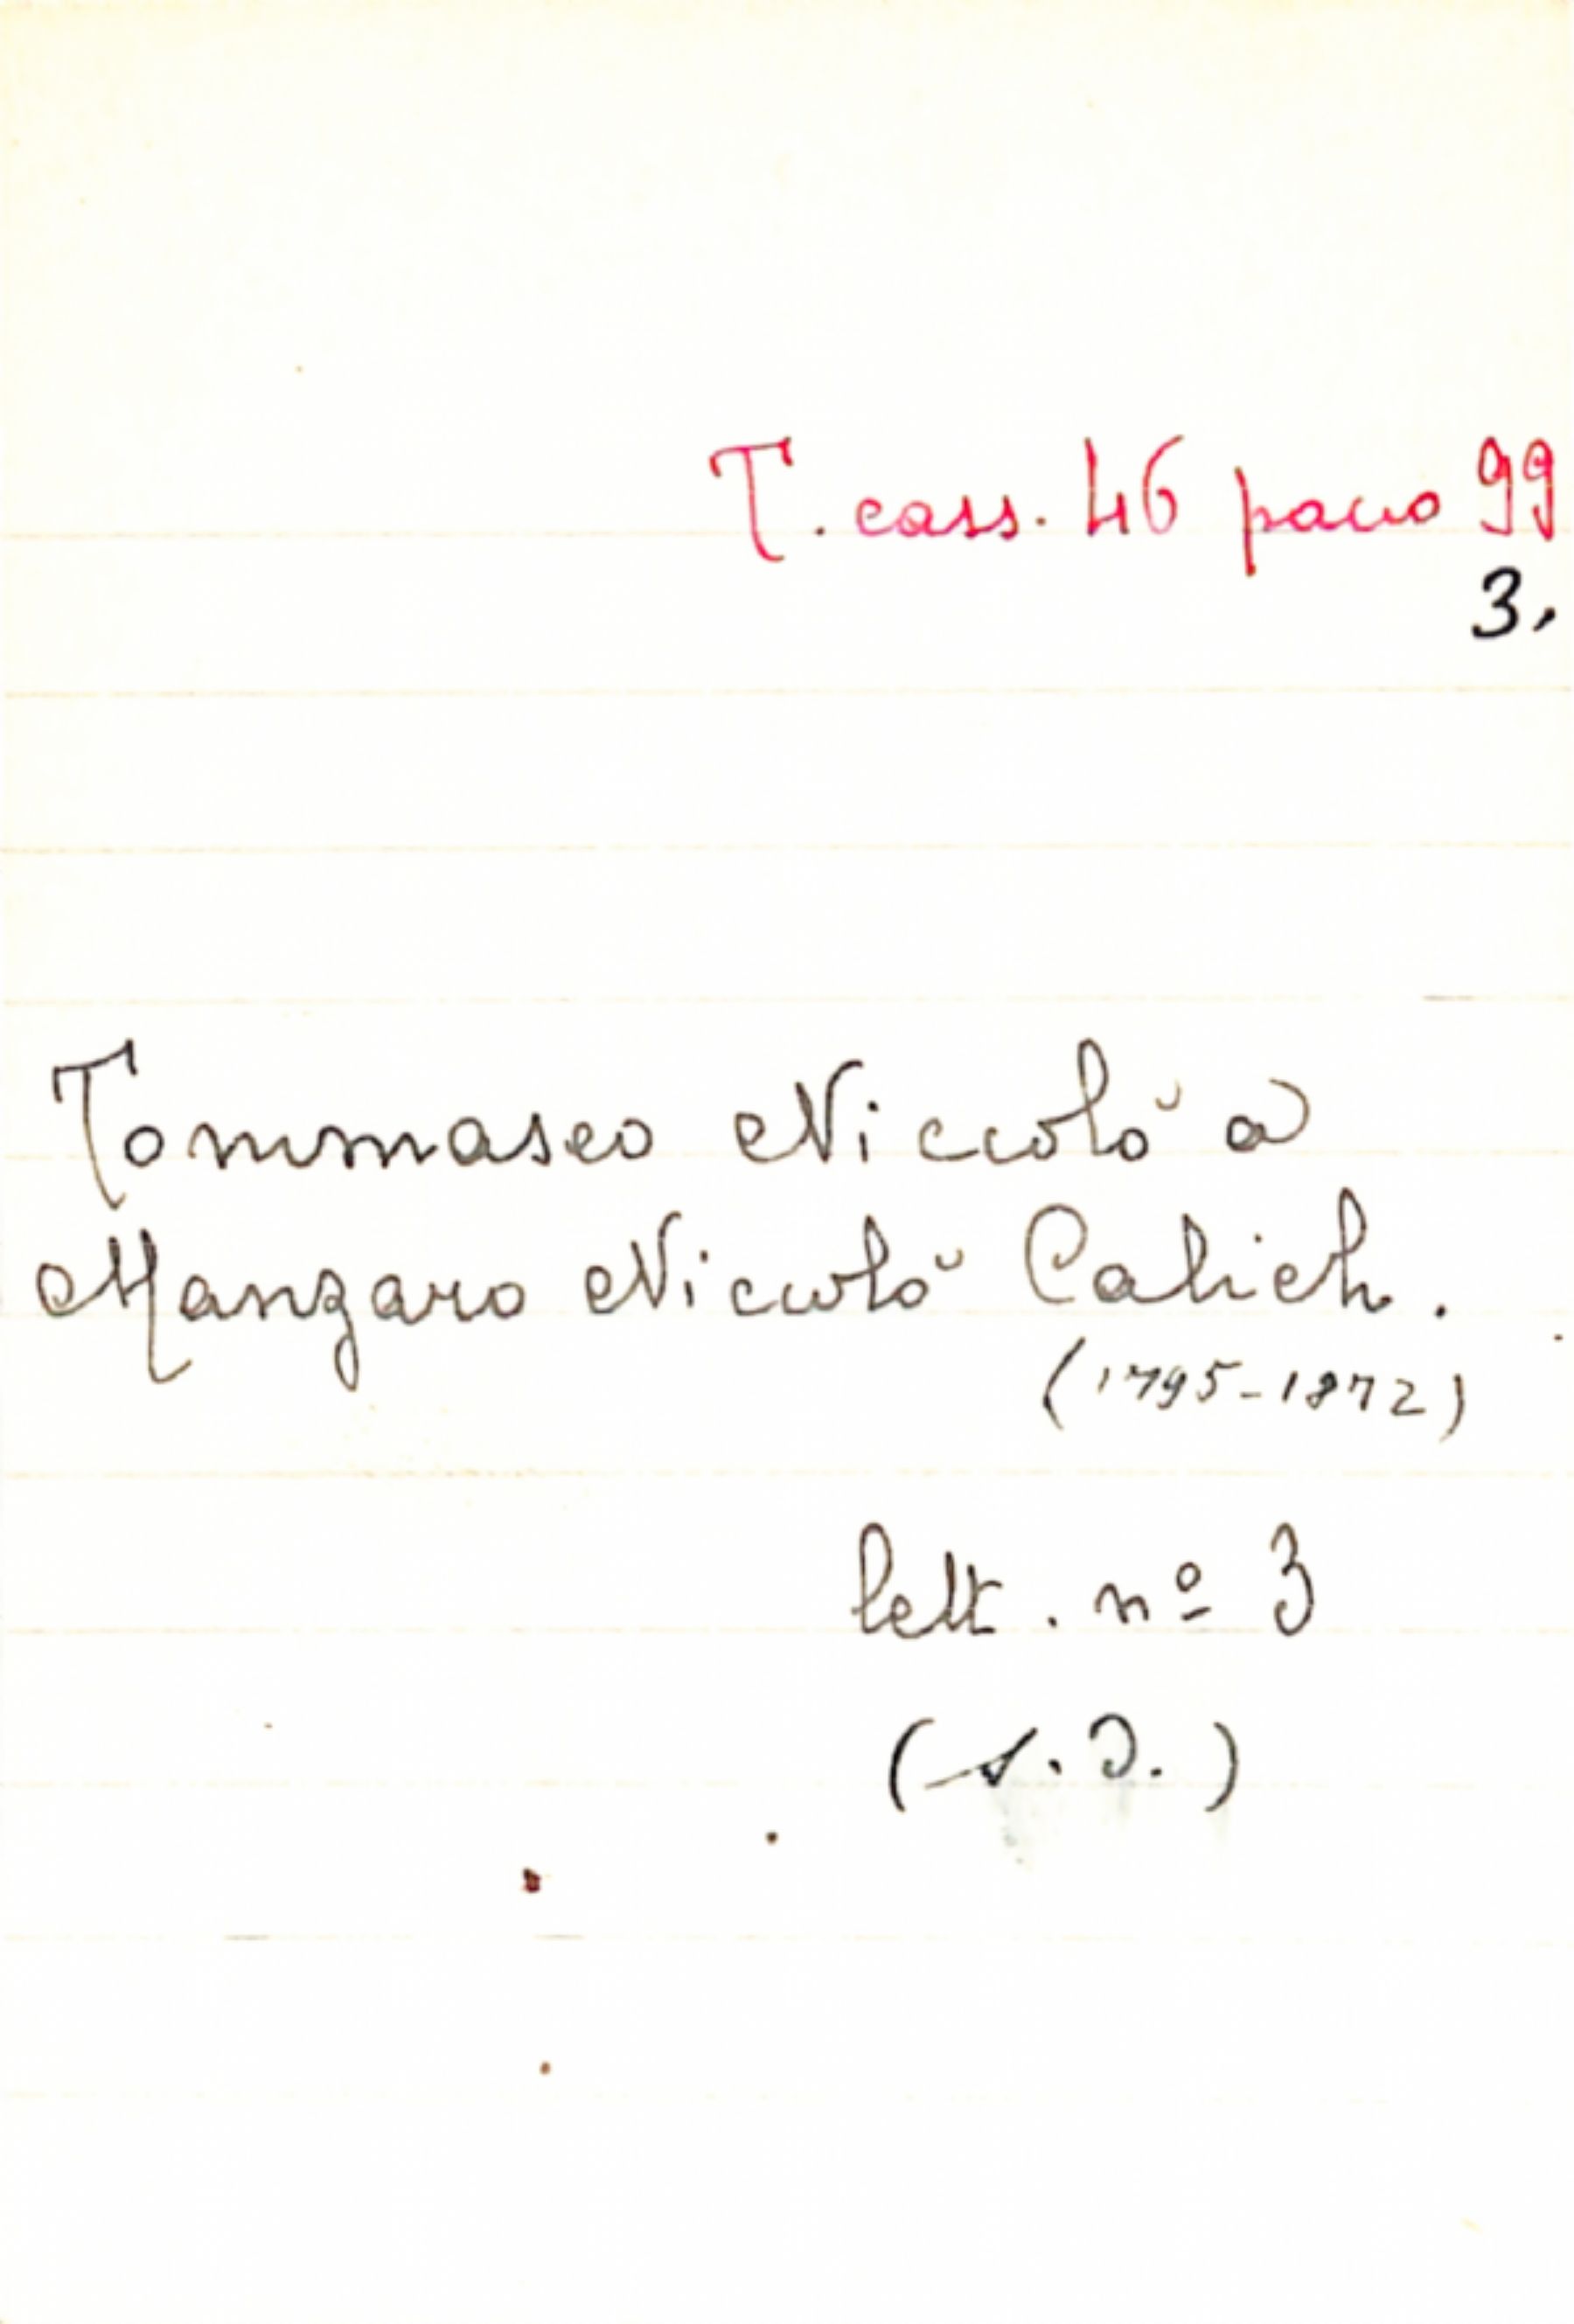 T. cass. 46 pacco 99
3.
Tommaseo Niccolò a
Manzaro Niccolò Calich.
(1795-1872)
lett. nº 3
(s.d.)